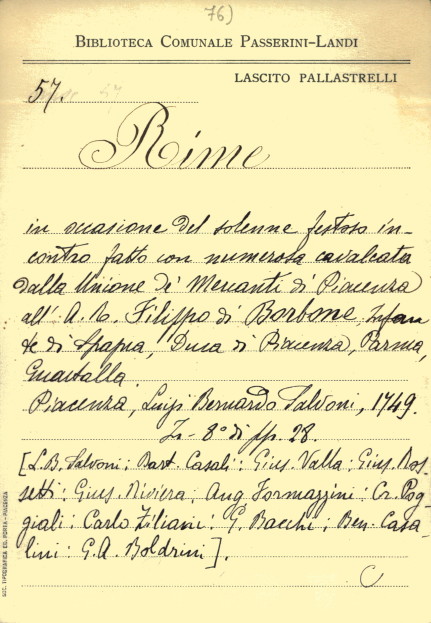 76)
BIBLIOTECA COMUNALE PASSERINI-LANDI
LASCITO PALLASTRELLI
57.
Rime
in occasione del solenne festoso in-
contro fatto con numerosa cavalcata
dalla Unione de' Mercanti di Piacenza
all' A. R. Filippo di Borbone, Infan
te di Spagna, Duca di Piacenza, Parma,
Guastalla.
Piacenza, Luigi Bernardo Salvoni, 1749.
In-8° di pp. 28.
[L.B. Salvoni: Bart. Casali: Gius. Valla: Gius. Ros-
setti: Gius. Riviera: Aug. Formazzini: Cr. Pog-
giali: Carlo Filiani: G. Bacchi: Ben. Casa-
lini: G. A. Boldrini].
C